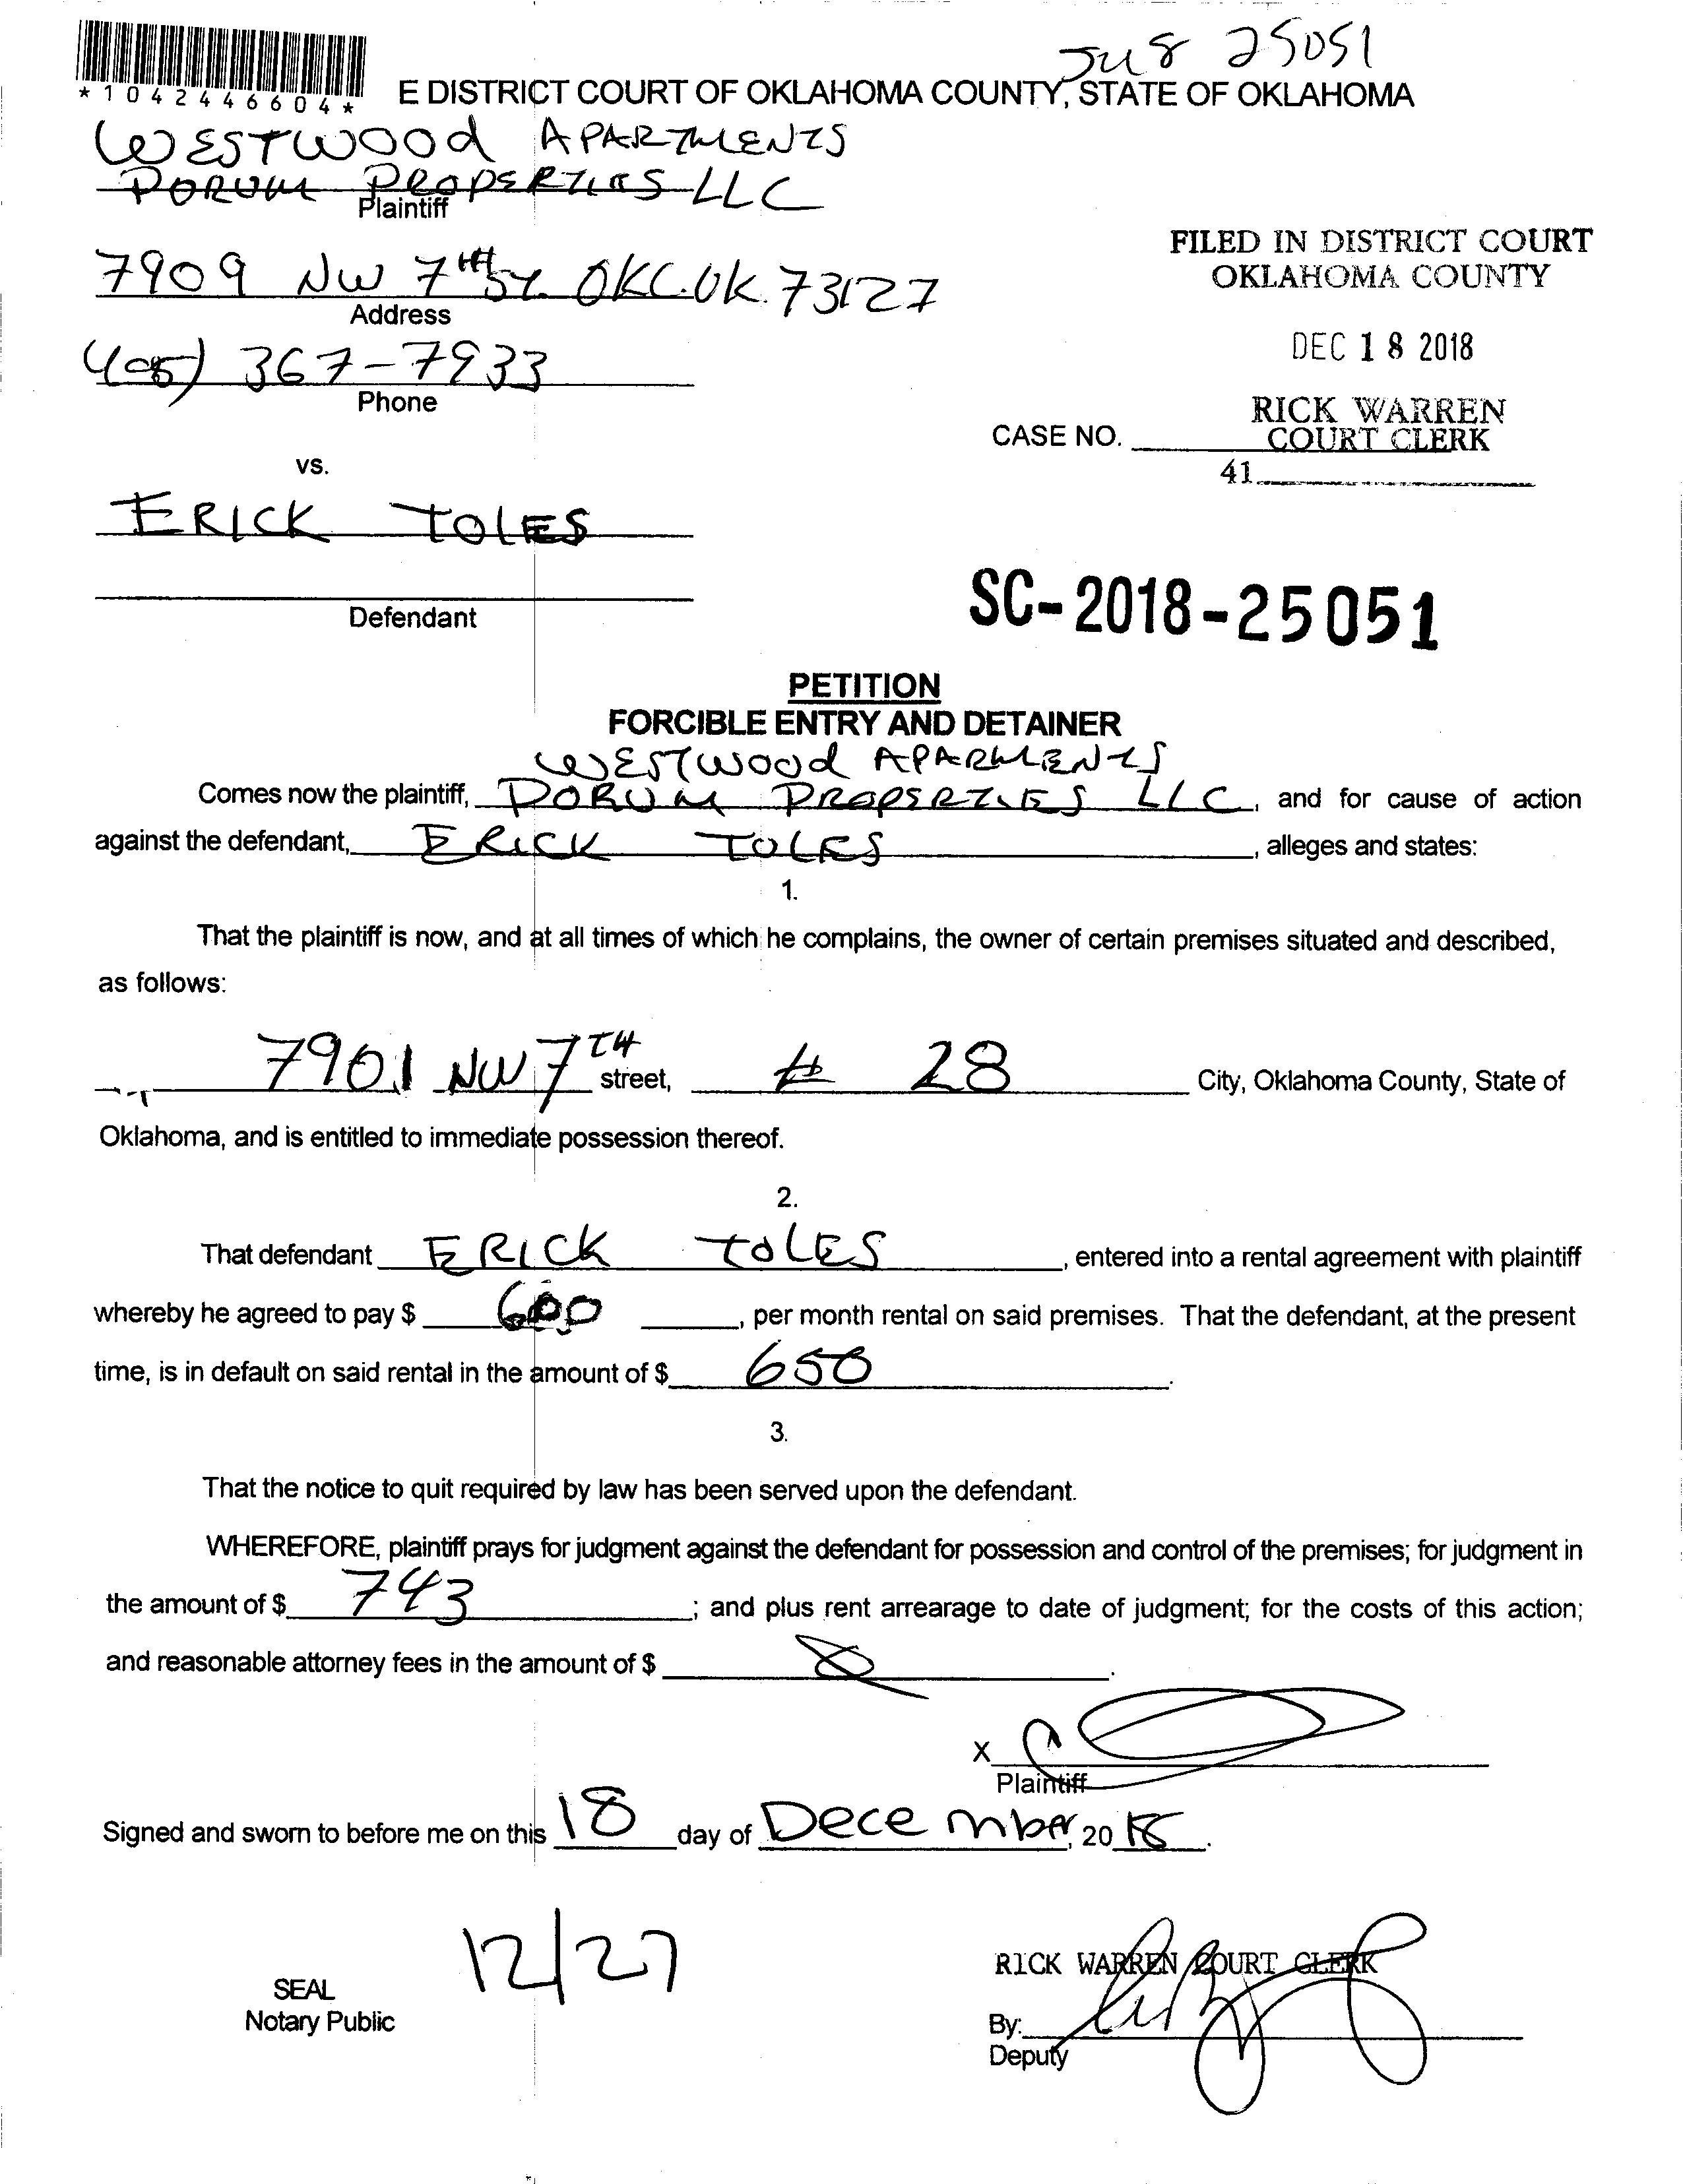 JU8 25051
*1042446604*
E DISTRICT COURT OF OKLAHOMA COUNTY, STATE OF OKLAHOMA
WESTWOOD APARTMENTS
PORUM PROPERTIES LLC
Plaintiff
7909 NW 7th St. OKC.OK. 73127
Address
(405) 367-7933
Phone
FILED IN DISTRICT COURT
OKLAHOMA COUNTY
DEC 18 2018
RICK WARREN
COURT CLERK
CASE NO.
41
vs.
ERICK TOLES
Defendant
SC-2018-25051
PETITION
FORCIBLE ENTRY AND DETAINER
WESTWOOD APARMENTS
Comes now the plaintiff, PORUM PROPERTIES LLC, and for cause of action
against the defendant, ERICK TOLES, alleges and states:
1.
That the plaintiff is now, and at all times of which he complains, the owner of certain premises situated and described,
as follows:
7901 NW 7TH street, # 28 City, Oklahoma County, State of
Oklahoma, and is entitled to immediate possession thereof.
2.
That defendant ERICK TOLES, entered into a rental agreement with plaintiff
whereby he agreed to pay $ 600, per month rental on said premises. That the defendant, at the present
time, is in default on said rental in the amount of $ 650.
3.
That the notice to quit required by law has been served upon the defendant.
WHEREFORE, plaintiff prays for judgment against the defendant for possession and control of the premises; for judgment in
the amount of $ 743; and plus rent arrearage to date of judgment; for the costs of this action;
and reasonable attorney fees in the amount of $
X
Plaintiff
Signed and sworn to before me on this 18 day of December, 2018.
12/27
SEAL
Notary Public
RICK WARREN COURT CLERK
By:
Deputy